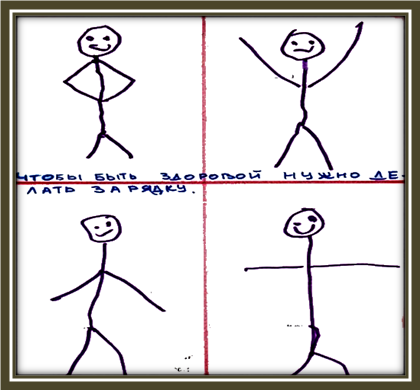 ЧТОБЫ БЫТЬ ЗДОРОВОЙ НУЖНО ДЕ-
ЛАТЬ ЗАРЯДКУ.